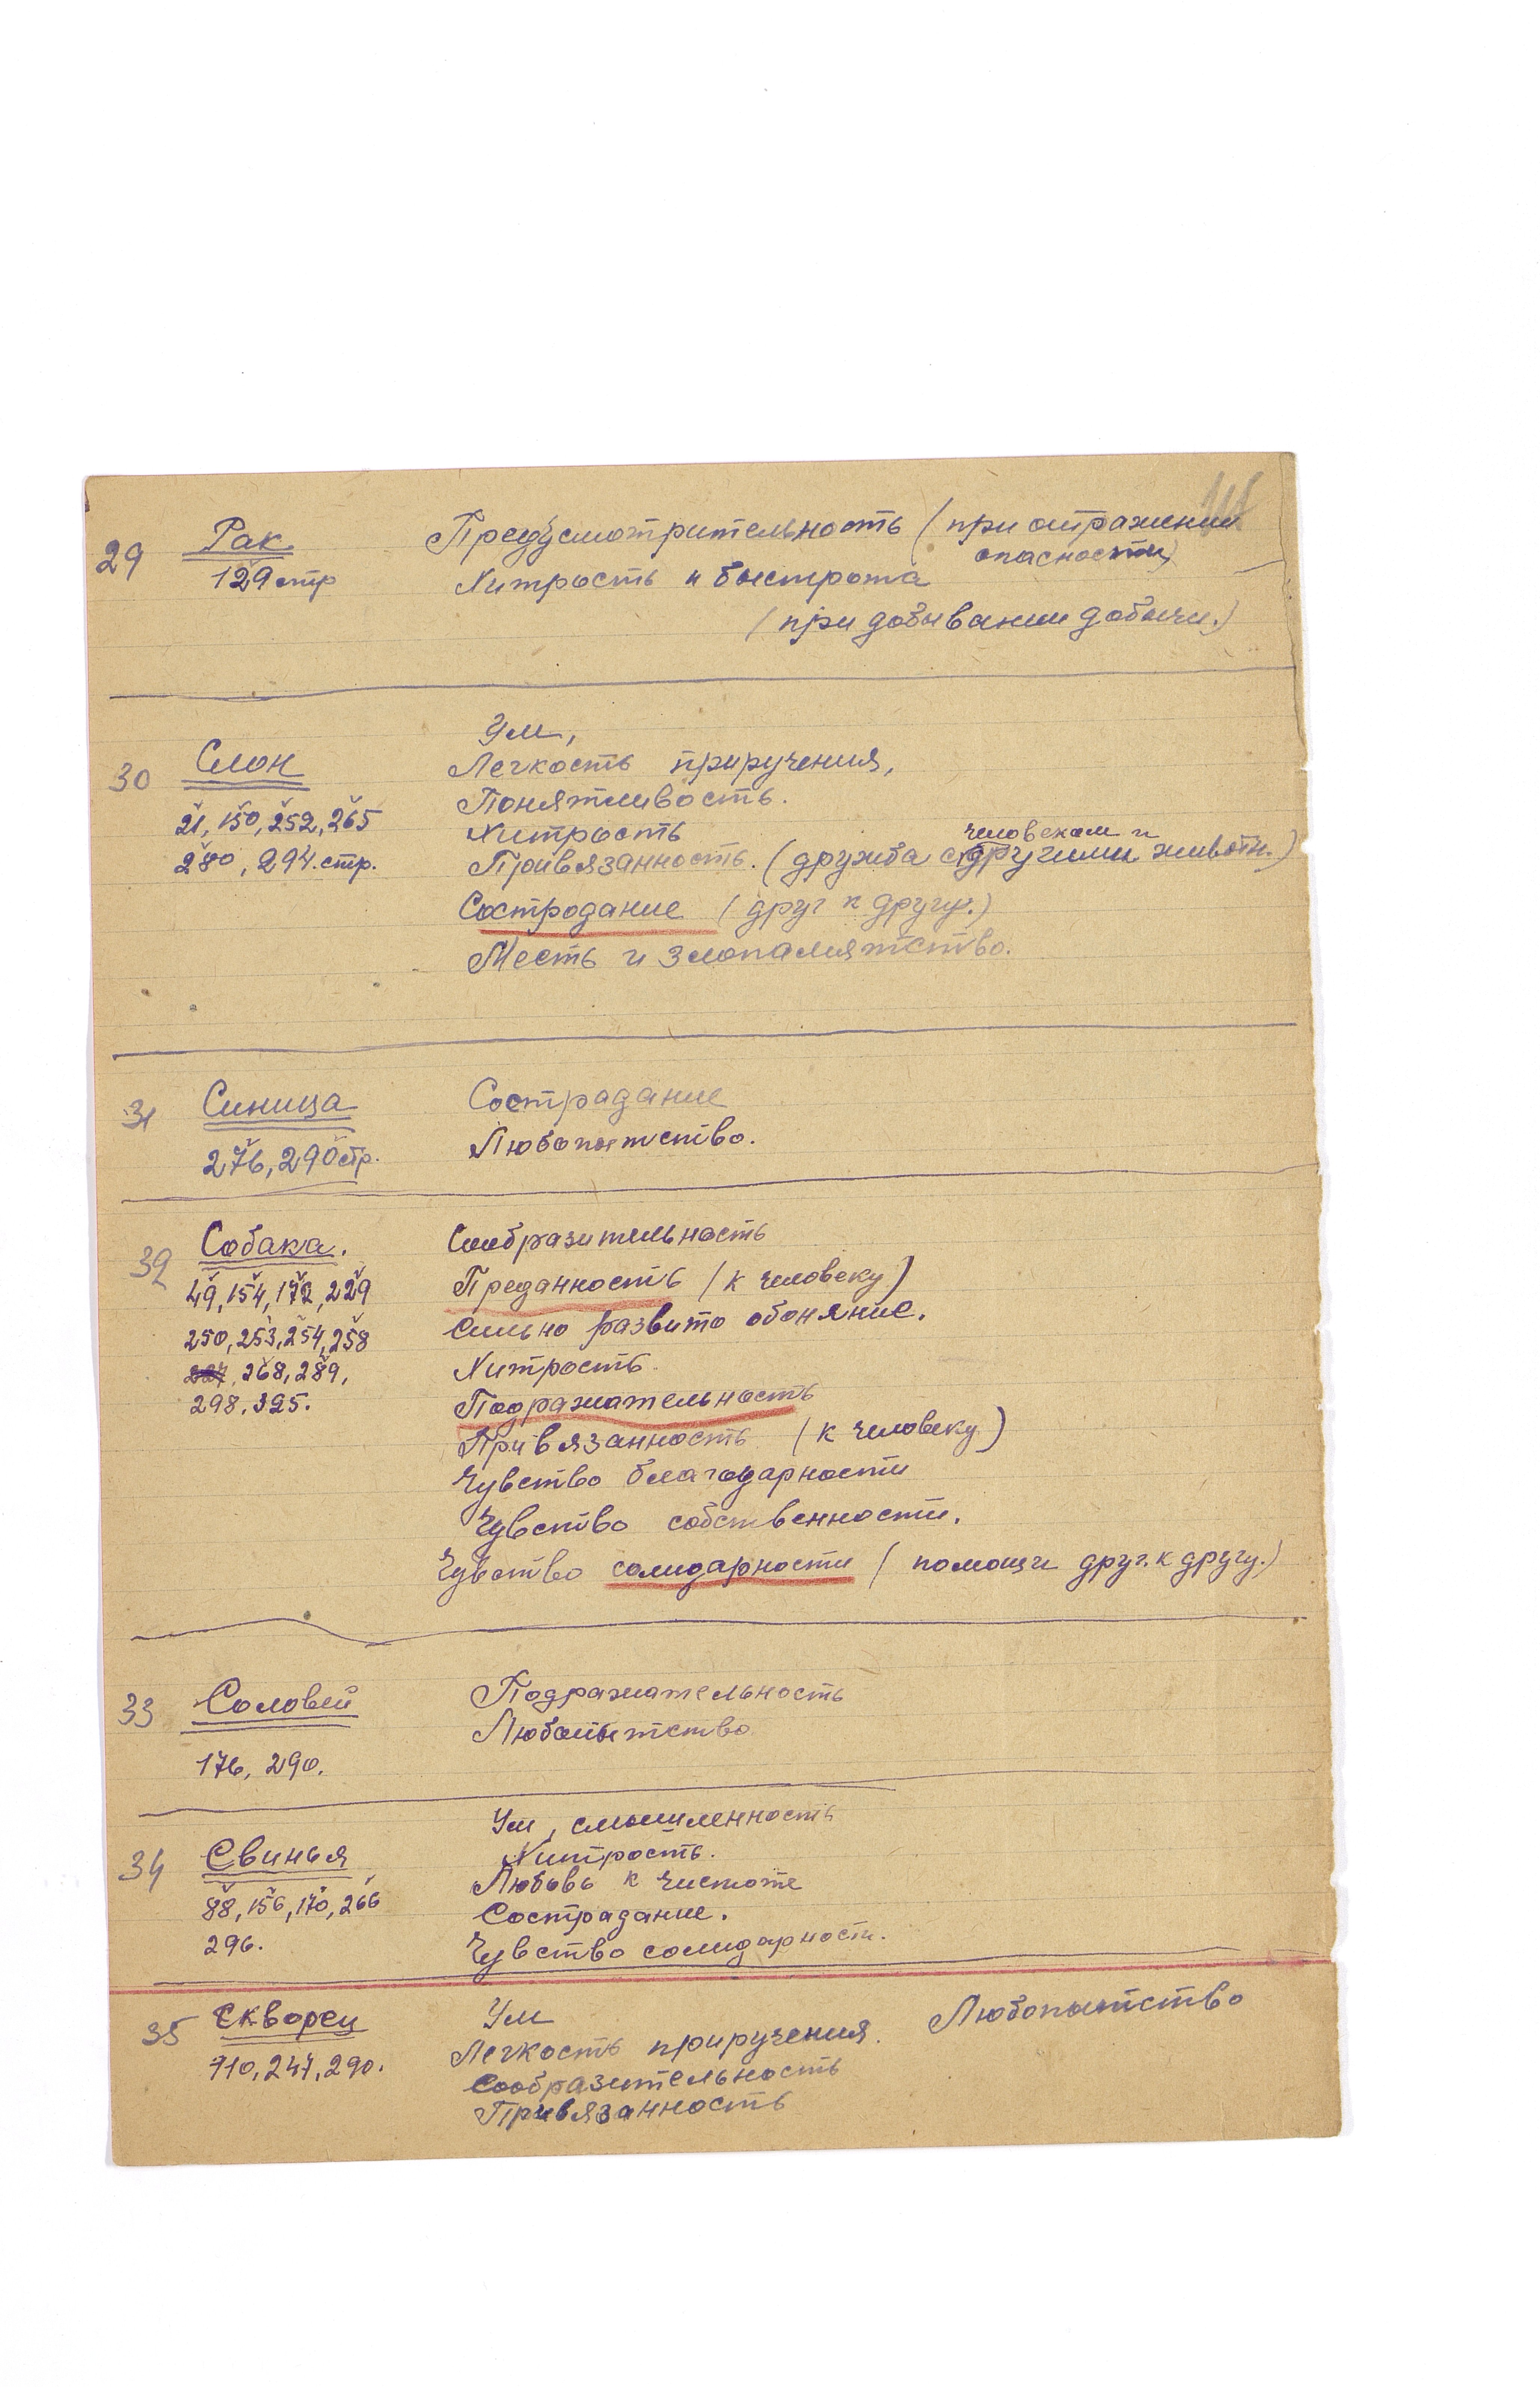 29 Рак Предусмотрительность (при отражении
опасности)
129 стр Хитрость и быстрота
(при добывании добычи.)
Ум,
30 Слон Легкость приручения,
Понятливость.
21, 150, 252, 265 Хитрость
человеком и
280, 294. стр. Привязанность. (дружба с другими животн.)
Состродание (друг к другу.)
Месть и злопамятство.
31 Синица Сострадание
276, 290 стр. Любопытство.
32 Собака. Сообразительность
49, 154, 172, 229 Преданность (к человеку)
250, 253, 254, 258 Сильно развито обоняние.
268, 289, Хитрость.
298, 325. Подражательность
Привязанность (к человеку)
Чувство благодарности
Чувство собственности.
Чувство солидарности (помощи друг. к другу.)
33 Соловей Подражательность
Любопытство
176, 290.
Ум, смышленность
34 Свинья Хитрость.
Любовь к чистоте
88, 156, 170, 266 Сострадание.
296. Чувство солидарности.
35 Скворец Ум Любопытство
910, 247, 290. Легкость приручения.
Сообразительность
Привязанность